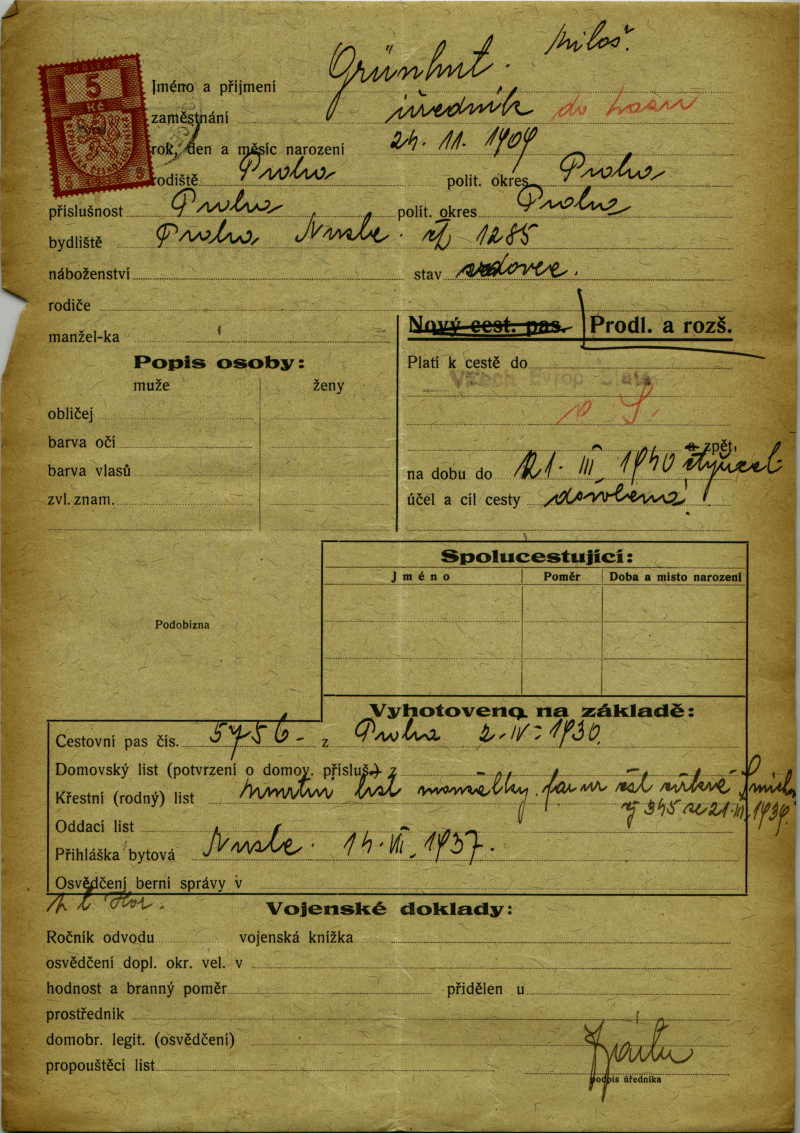 Jméno a příjmení Grünhut. Miloš.
5
Kč
5 5
zaměstnání úředník do pasu
rok, den a měsíc narození 24. 11. 1909
rodiště Praha polit. okres Praha
příslušnost Praha polit. okres Praha
bydliště Praha Nusle. čp 1285
náboženství stav vdovec.
rodiče
manžel-ka
Nový cest. pas. Prodl. a rozš.
Popis osoby:
muže ženy
obličej
barva očí
barva vlasů
zvl. znam.
Platí k cestě do
Všech Evrop. států
a zpět
na dobu do 21. III. 1940
účel a cíl cesty dovolená
Spolucestující:
Jméno Poměr Doba a místo narození
Podobizna
Vyhotoveno na základě:
Cestovní pas čís. 5756- z Praha 2. IV. 1930.
Domovský list (potvrzení o domov. přísluš.) z
Křestní (rodný) list úmrtní list manželky. far. úř.
čj 345 ze 21. III. 1939.
Oddací list
Přihláška bytová Nusle. 14. VII. 1937.
Osvědčení berní správy v
Vojenské doklady:
Ročník odvodu vojenská knížka
osvědčení dopl. okr. vel. v
hodnost a branný poměr přidělen u
prostředník
domobr. legit. (osvědčení)
propouštěcí list
podpis úředníka